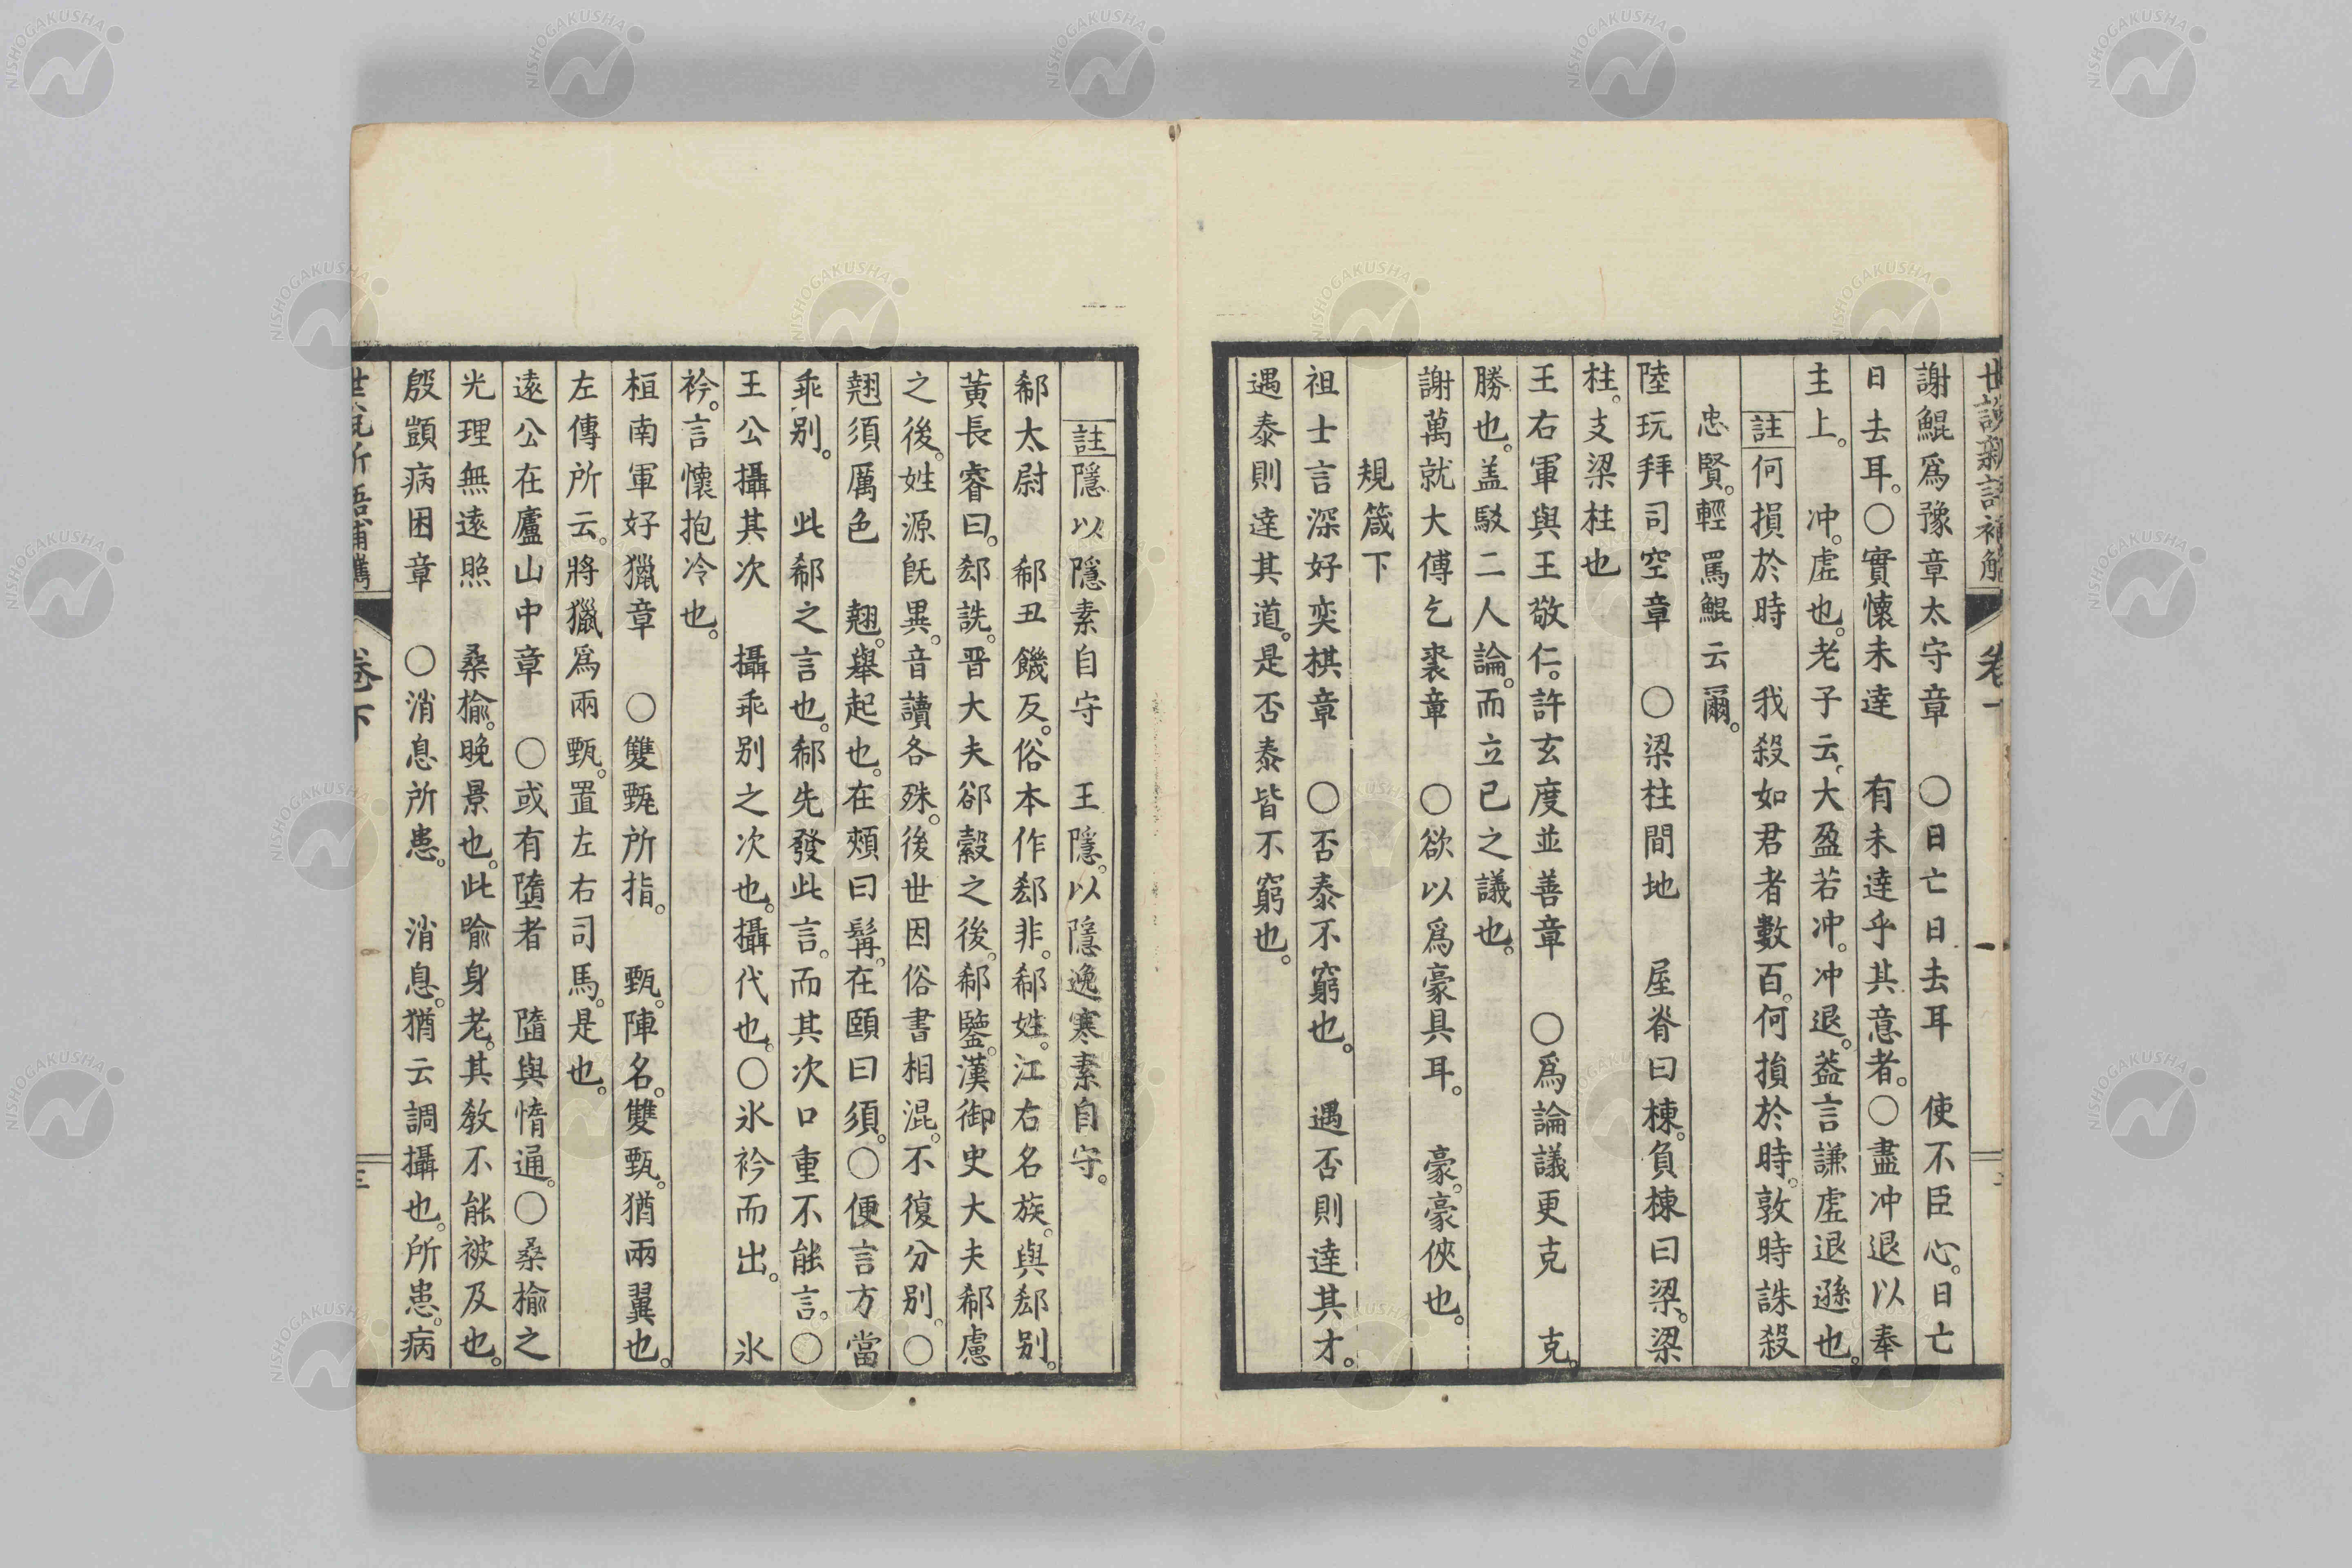 謝鯤爲豫章太守章　〇日亡日去耳　使不臣心。日亡
日去耳。〇實懷未達　有未達乎其意者。〇盡冲退以奉
主上。　冲。虛也。老子云、大盈若冲。冲退。葢言謙虛退遜也。
註　何損於時　我殺如君者數百。何損於時。敦時誅殺
忠賢。輕罵鯤云爾。
陸玩拜司空章　〇梁柱間地　屋脊曰棟。負棟曰梁。梁
柱。支梁柱也
王右軍與王敬仁。許玄度並善章　〇爲論議更克　克。
勝也。盖駁二人論。而立己之議也。
謝萬就大傅乞裘章　〇欲以爲豪具耳。　豪。豪俠也。
規箴下
祖士言深好奕棋章　〇否泰不窮也。　遇否則達其才。
遇泰則達其道。是否泰皆不窮也。
註　隱以隱素自守　王隱。以隱逸寒素自守。
郗太尉　郗丑饑反。俗本作郄非。郗姓。江右名族。與郄別。
黃長睿曰。郄詵。晋大夫郤縠之後。郗鑒。漢御史大夫郗慮
之後。姓源旣異。音讀各殊。後世因俗書相混。不復分別。〇
翹須厲色　翹。舉起也。在頰曰髯。在頤曰須。〇便言方當
乖別。　此郗之言也。郗先發此言。而其次口重不能言。〇
王公攝其次　攝乖別之次也。攝代也。〇氷衿而出。　氷
衿。言懷抱冷也。
桓南軍好獵章　〇雙甄所指。　甄。陣名。雙甄。猶兩翼也。
左傳所云。將獵爲兩甄。置左右司馬。是也。
遠公在廬山中章　〇或有墮者　墮與惰通。〇桑榆之
光理無遠照　桑榆。晚景也。此喩身老。其敎不能被及也。
殷顗病困章　〇消息所患。　消息。猶云調攝也。所患。病